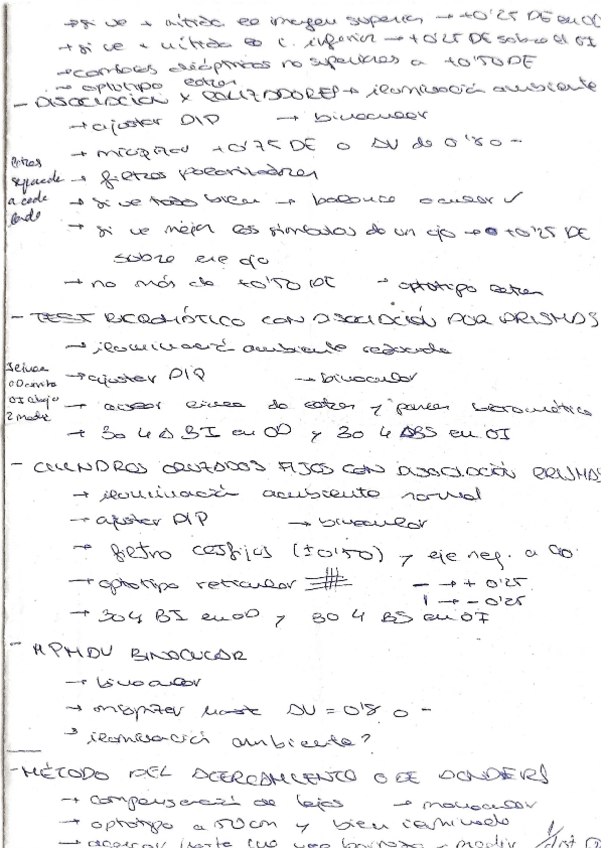 → si ve + nítida es imagen superior → +0'25 DE en OD
→ si ve + nítida es i. inferior → +0'25 DE sobre el OI
→ cambios dióptricos no superiores a +0'50 DE
→ optotipo letras
- DISOCIACIÓN X POLARIZADORES → iluminación ambiente
→ ajustar DIP → binocular
→ miopizar +0'75 DE o AV de 0'8 o -
→ filtros polarizadores
letras
a cada
lado
→ si ve todo bien → balance ocular ✓
→ si ve mejor los símbolos de un ojo → +0'25 DE
sobre ese ojo
→ no más de +0'50 DE → optotipo letras
- TEST BICROMÁTICO CON DISOCIACIÓN POR PRISMAS
→ iluminación ambiente reducida
→ ajustar DIP → binocular
OI abajo
→ línea de letras y panel bicromático
→ 3 o 4 Δ BI en OD y 3 o 4 ΔBS en OI
- CILINDROS CRUZADOS FIJOS CON DISOCIACIÓN PRISMAS
→ iluminación ambiente normal
→ ajustar DIP → binocular
→ filtro (±0'50) y eje neg. a 90
→ optotipo reticular
— → + 0'25
| → - 0'25
→ 3 o 4 BI en OD y 3 o 4 BS en OI
- MPMAV BINOCULAR
→ binocular
→ miopizar hasta AV = 0'8 o -
→ iluminación ambiente?
- MÉTODO DEL ACERCAMIENTO O DE DONDERS
→ compensación de lejos → monocular
→ optotipo a 50cm y bien iluminado
→ acercar hasta que vea borroso y medir